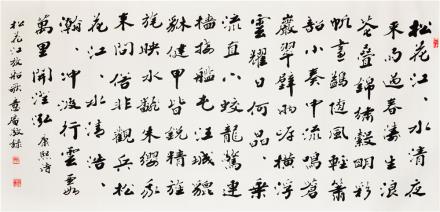 松花江江水清夜
来雨过春涛生浪
花叠锦绣縠明彩
帆画鹢随风轻箫
韶小奏中流鸣苍
岩翠壁两岸横浮
云耀日何晶晶乘
流直下蛟龙惊连
樯接舰屯江城貔
貅健甲皆锐精旌
旄映水翻朱缨我
来问俗非观兵松
花江江水清浩浩
瀚瀚冲波行云霞
万里开澄泓 康熙诗
松花江放船歌